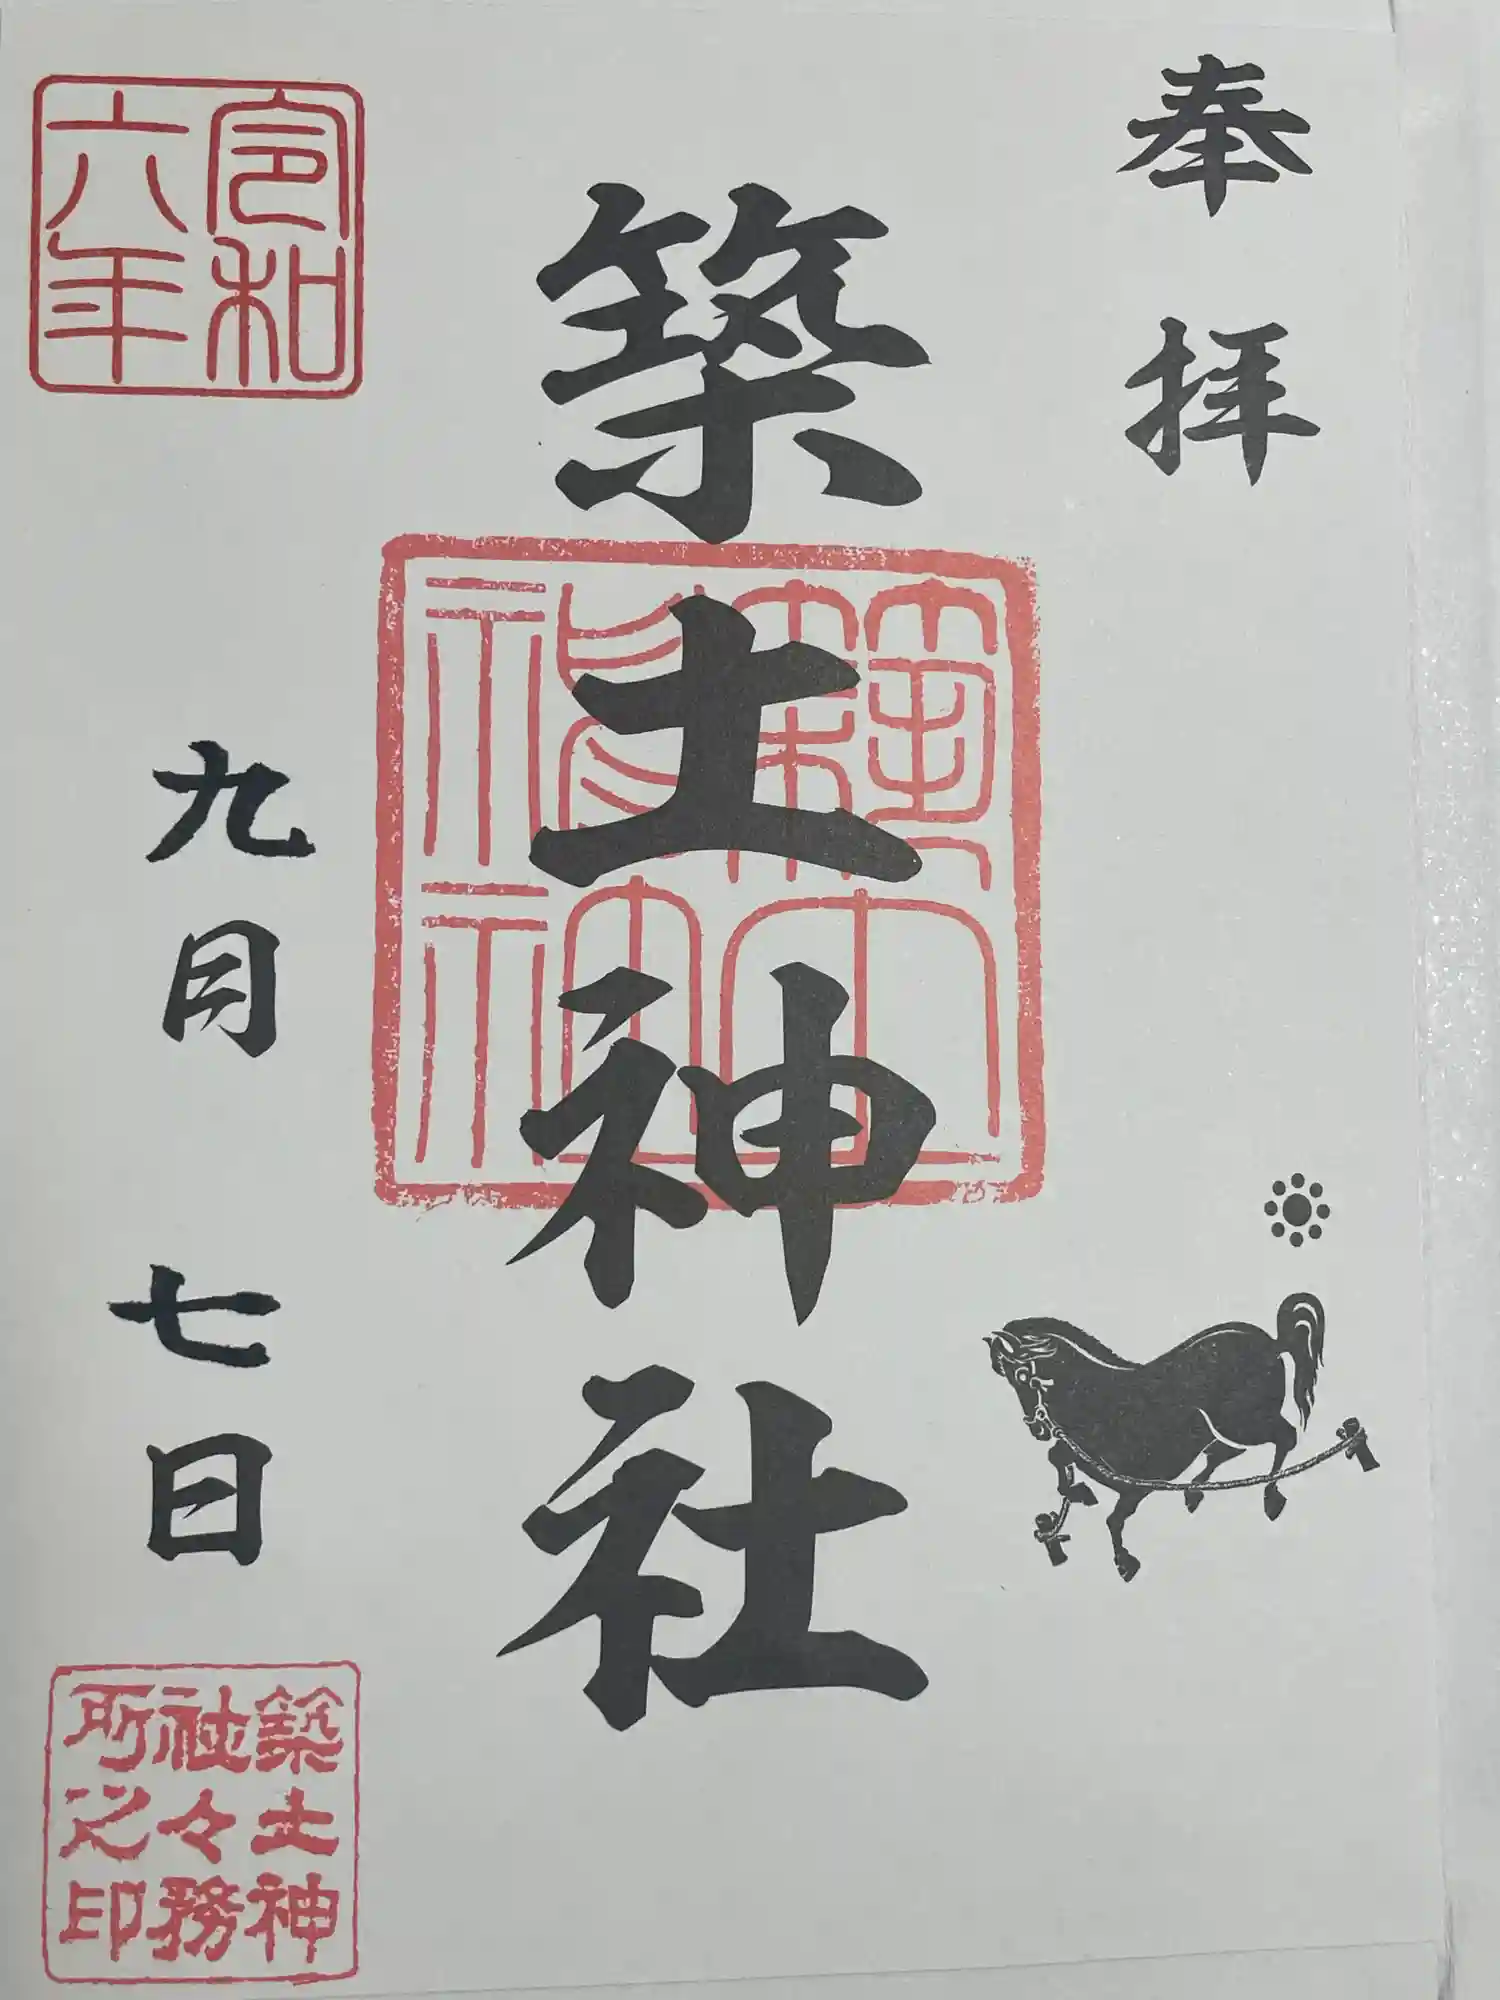 奉拝
築土神社
築土神社
令和六年
九月七日
築土神
社々務
所之印